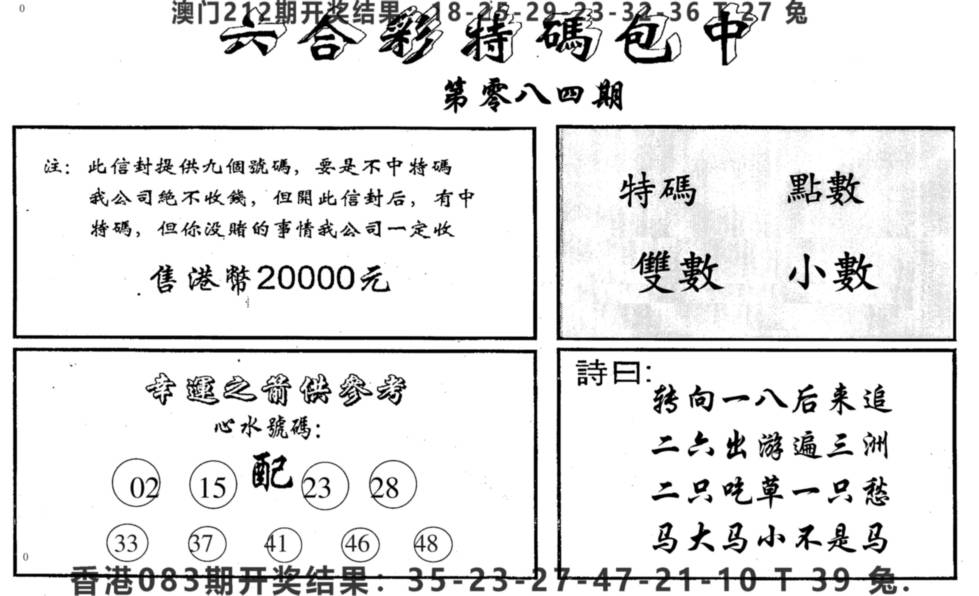 0
澳门212期开奖结果：18-25-29-23-32-36 T 27 兔
六合彩特碼包中
第零八四期
注：此信封提供九個號碼，要是不中特碼
我公司絕不收錢，但開此信封后，有中
特碼，但你没賭的事情我公司一定收
售港幣20000元
特碼 點數
雙數 小數
幸運之箭供參考
心水號碼：
02 15 配 23 28
33 37 41 46 48
詩曰:
转向一八后来追
二六出游遍三洲
二只吃草一只愁
马大马小不是马
0
香港083期开奖结果：35-23-27-47-21-10 T 39 兔.